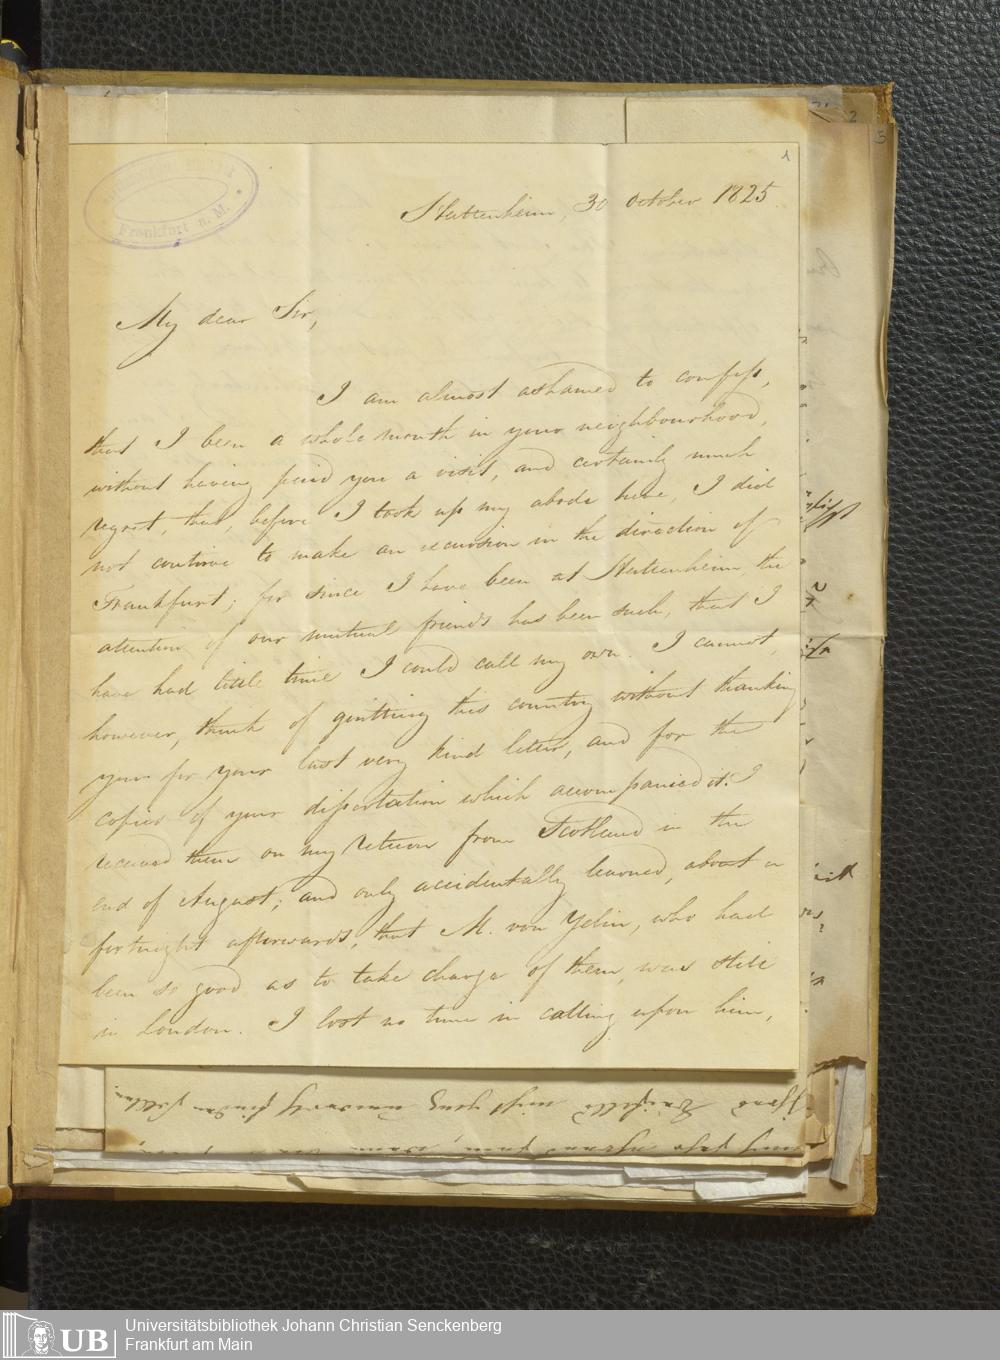 1
Stuttenheim, 30 October 1825.
My dear Sir,
I am almost ashamed to confess,
that I been a whole month in your neighbourhood,
without having paid you a visit, and certainly much
regret, that, before I took up my abode here, I did
not contrive to make an excursion in the direction of
Frankfurt; for since I have been at Stuttenheim, the
attention of our mutual friends has been such, that I
have had little time I could call my own. I cannot,
however, think of quitting this country without thanking
you for your last very kind letter, and for the
copies of your dissertation which accompanied it. I
received them on my return from Scotland in the
end of August; and only accidentally learned, about a
fortnight afterwards, that M. von Yelin, who had
been so good as to take charge of them, was still
in London. I lost no time in calling upon him,
Frankfurt a. M.
2
3
UB
Universitätsbibliothek Johann Christian Senckenberg
Frankfurt am Main